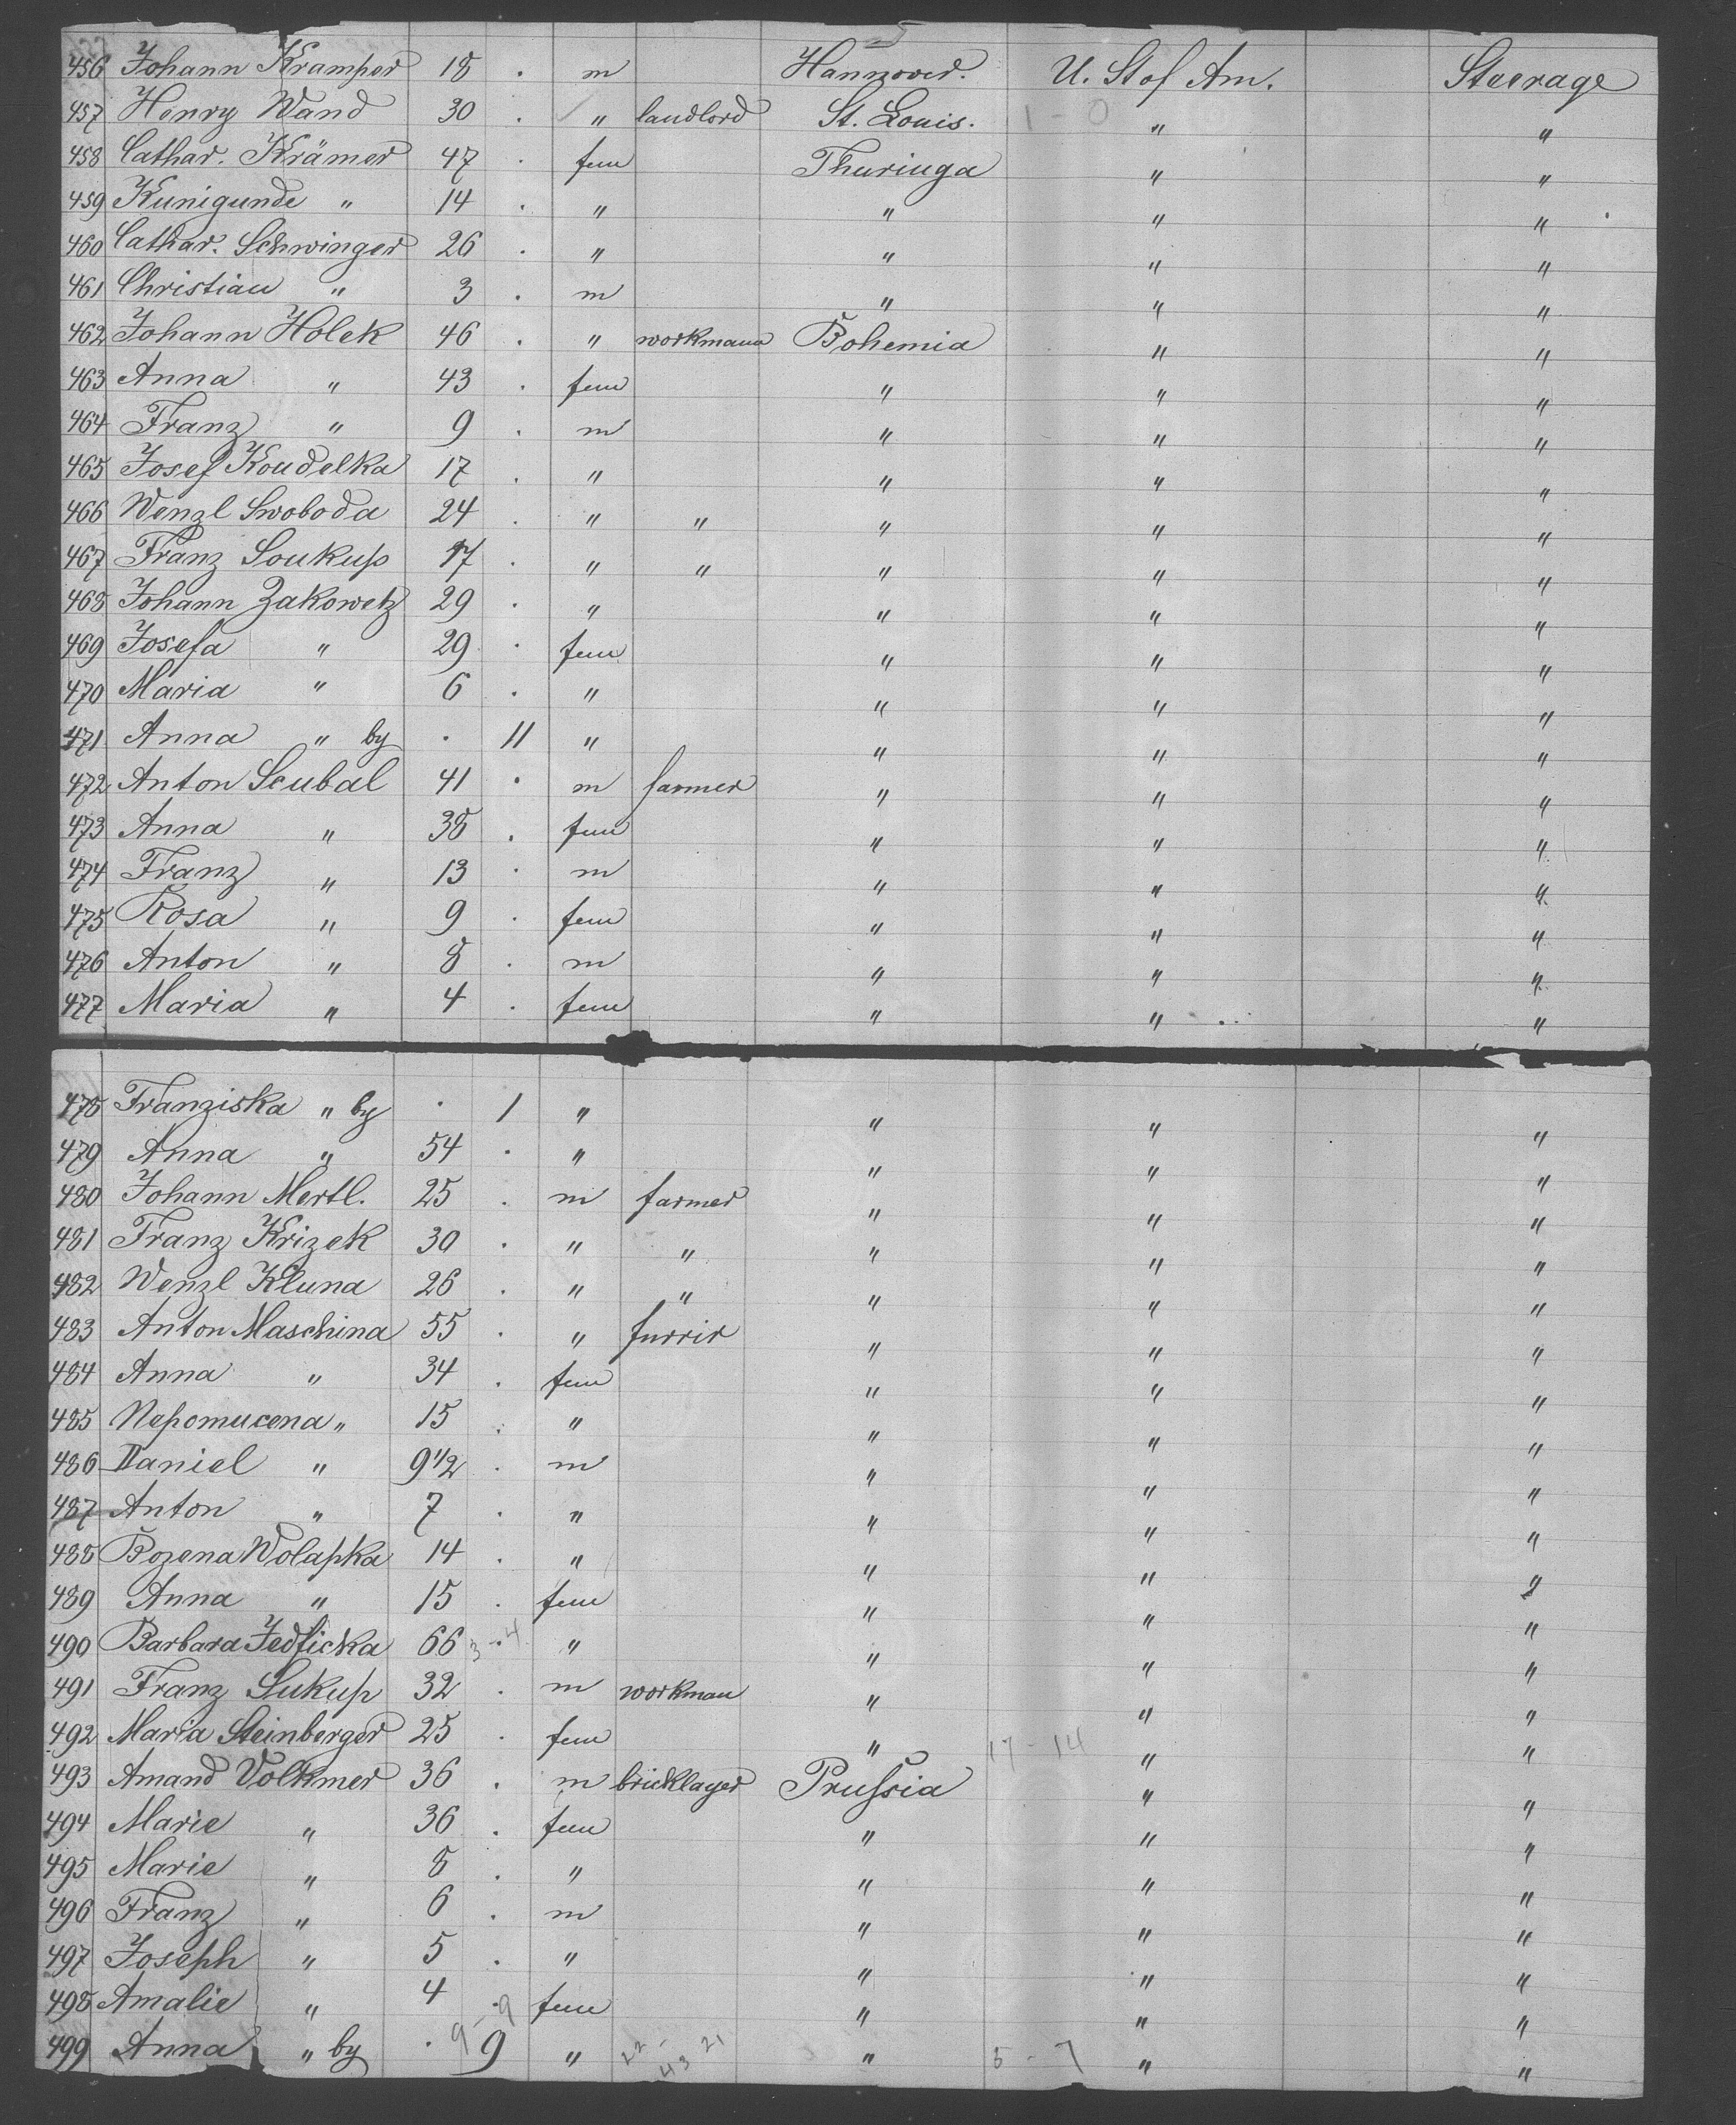 456 Johann Kramper 18 . m Hannover. U. St of Am. Steerage
457 Henry Wand 30 . " landlord St. Louis. 1 - 0 " "
458 Cathar. Krämer 47 . fem Thuringa " "
459 Kunigunde " 14 . " " " "
460 Cathar. Schwinger 26 . " " " "
461 Christian " 3 . m " " "
462 Johann Holek 46 . " workmann Bohemia " "
463 Anna " 43 . fem " " "
464 Franz " 9 . m " " "
465 Josef Koudelka 17 . " " " "
466 Wenzl Swoboda 24 . " " " " "
467 Franz Soukup 17 . " " " " "
468 Johann Zakowetz 29 . " " " "
469 Josefa " 29 . fem " " "
470 Maria " 6 . " " " "
471 Anna " by . 11 " " " "
472 Anton Scubal 41 . m farmer " " "
473 Anna " 38 . fem " " "
474 Franz " 13 . m " " "
475 Rosa " 9 . fem " " "
476 Anton " 8 . m " " "
477 Maria " 4 . fem " " "
478 Franziska " by . 1 " " " "
479 Anna " 54 . " " " "
480 Johann Mertl. 25 . m farmer " " "
481 Franz Krizek 30 . " " " " "
482 Wenzl Kluna 26 . " " " " "
483 Anton Maschina 55 . " furrir " " "
484 Anna " 34 . fem " " "
485 Nepomucena " 15 . " " " "
486 Daniel " 9 1/2 . m " " "
487 Anton " 7 . " " " "
488 Bozena Wolapka 14 . " " " "
489 Anna " 15 . fem " " "
490 Barbara Jedlicka 66 3 - 4 " " " "
491 Franz Sukup 32 . m workman " " "
492 Maria Steinberger 25 . fem " 17 - 14 " "
493 Amand Volkmer 36 . m bricklayer Prussia " "
494 Marie " 36 . fem " " "
495 Marie " 8 . " " " "
496 Franz " 6 . m " " "
497 Joseph " 5 . " " " "
498 Amalie " 4 . fem " " "
499 Anna " by . 9 - 9 9 " 22 - 21 43 " 5 - 7 " "